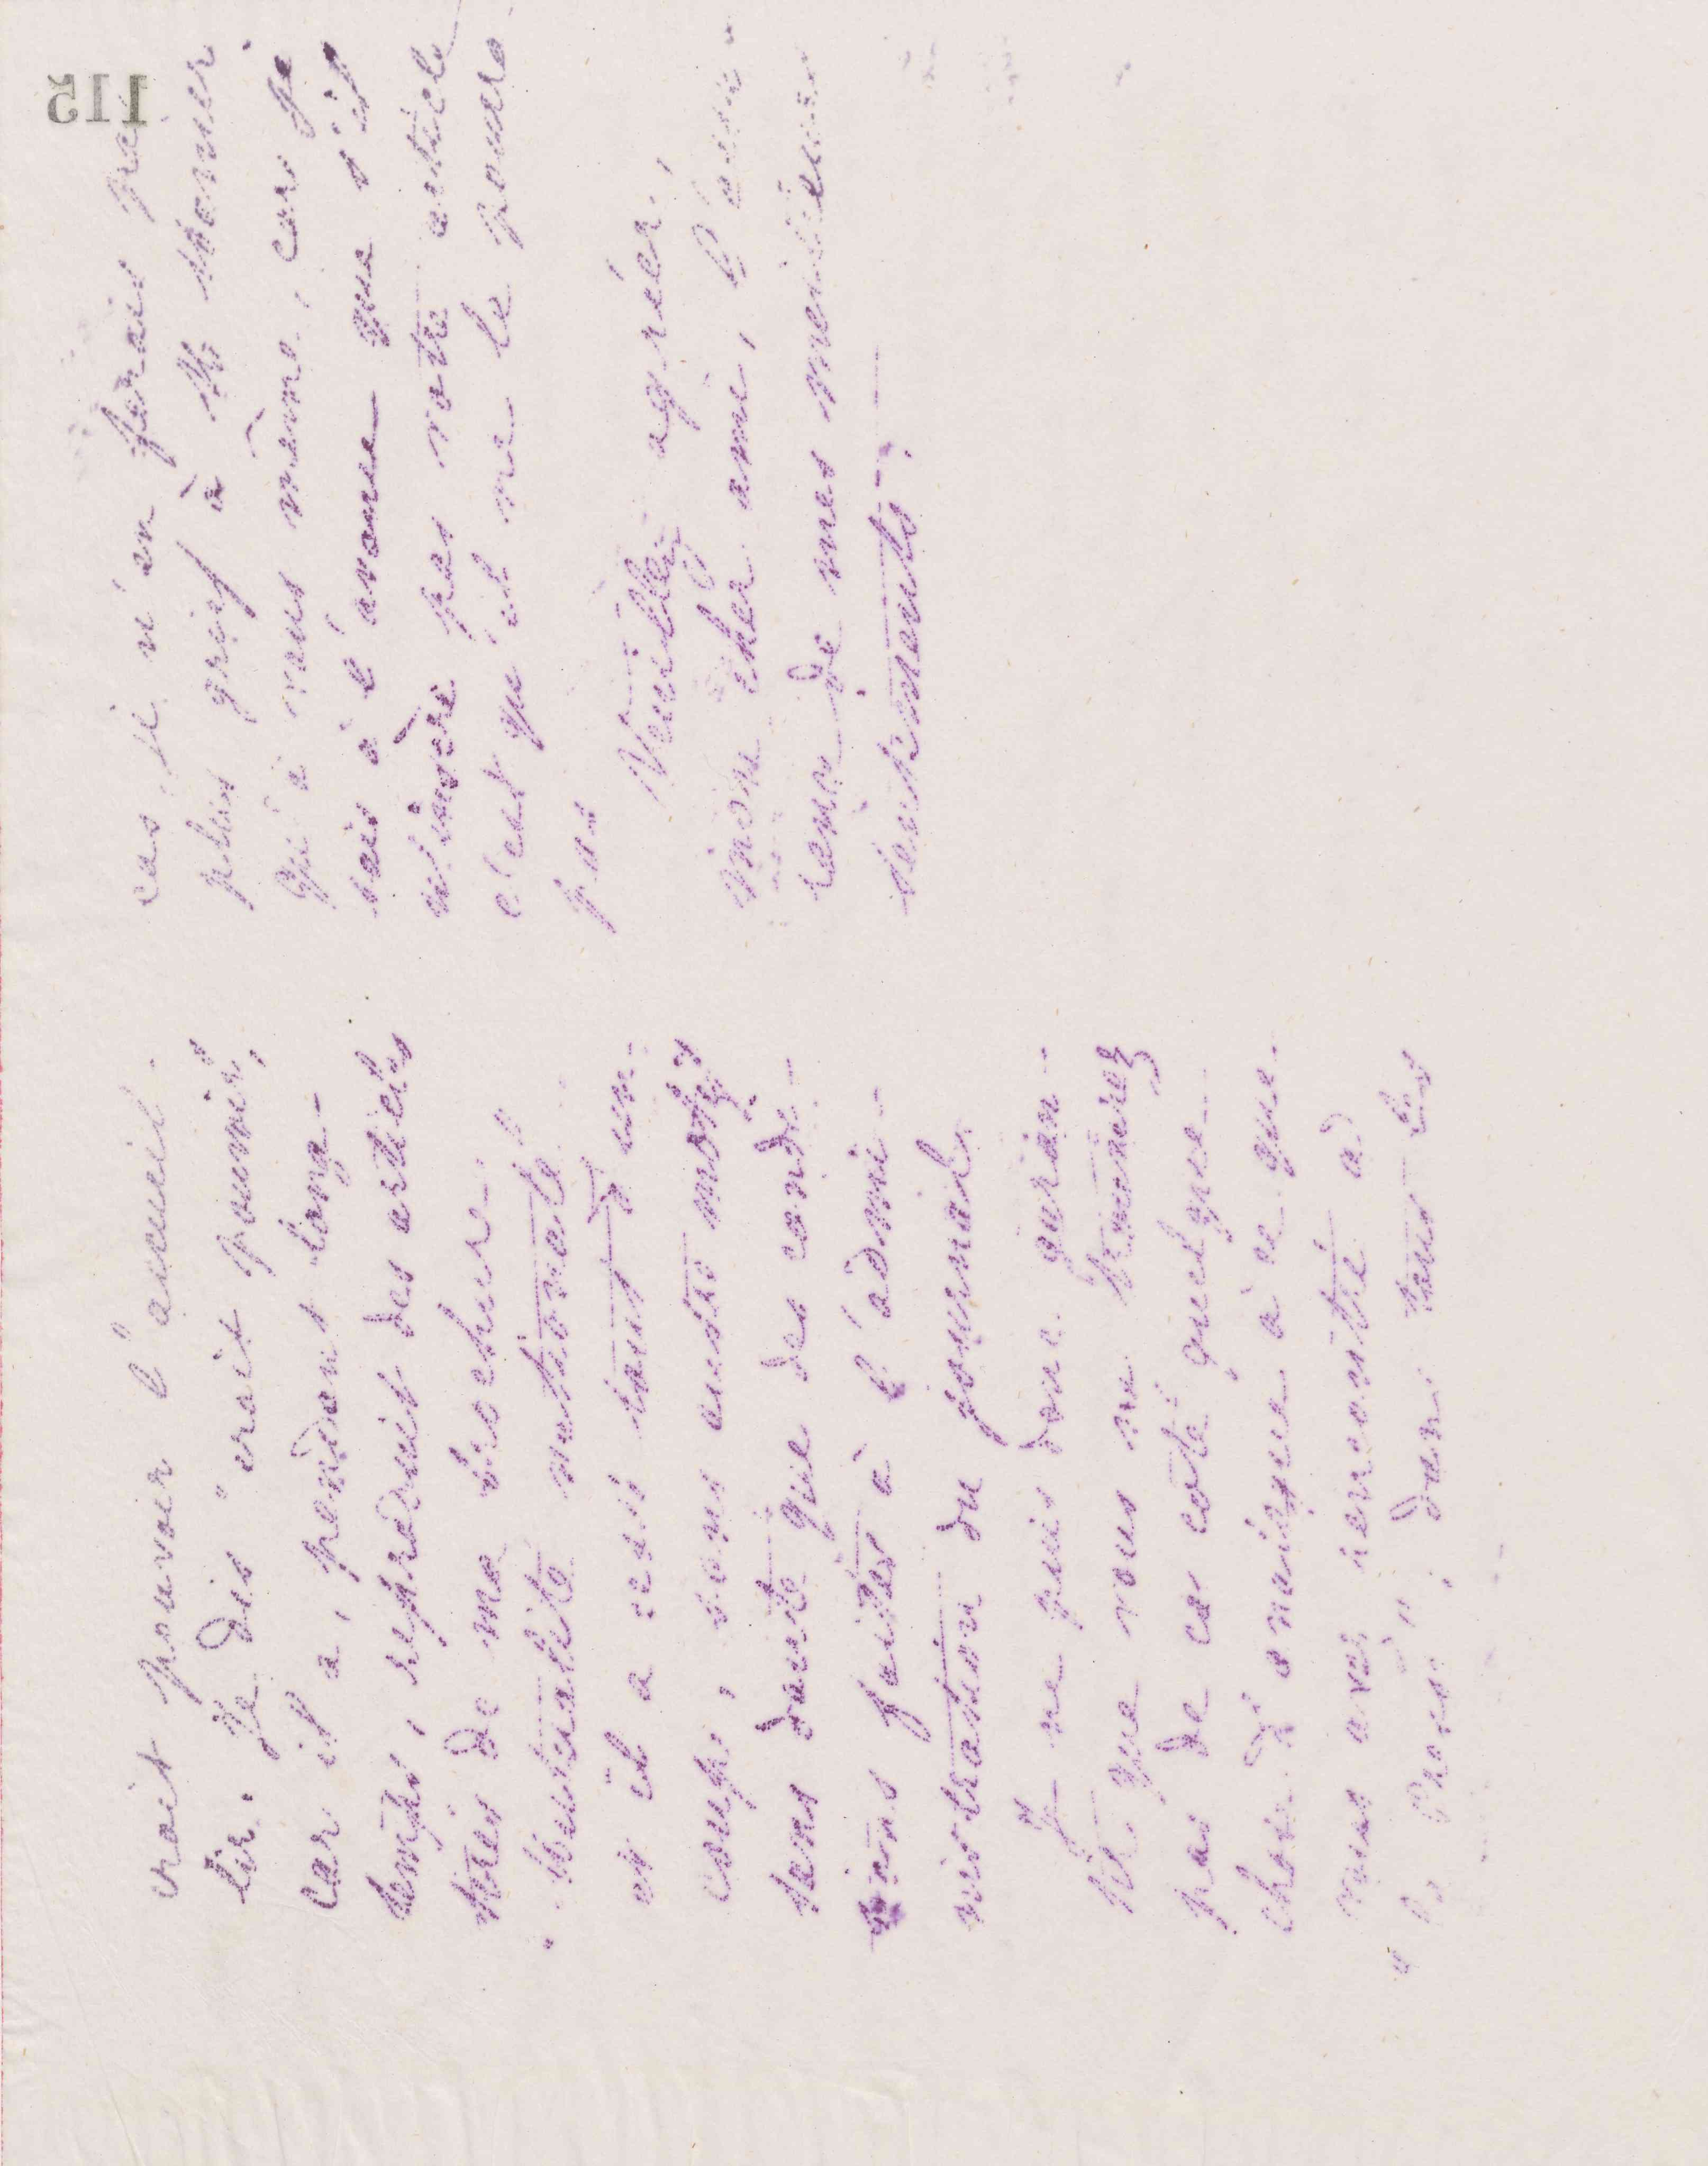 crait pouvoir l'accueil-
lir. Je dis "crait pouvoir",
car il a, pendant long-
temps, reproduit des articles
tirés de ma brochure
"Neutralité nationale"
et il a cessé tout d'un
coup, sans autre motif
sans doute que des condi-
tions faites à l'admi-
nistration du journal.
Je ne puis donc garan-
tir que vous ne trouviez
pas de ce côté quelque
chose d'analogue à ce que
vous avez rencontré à
"La Presse"; dans tous les
cas, je n'en ferais pas
plus grief à M
qu'à vous même, car je
sais à l'avance que s'il
n'insère pas votre article
c'est qu'il ne le pourra
pas
Veuillez agréer,
mon cher ami, l'assu-
rance de mes meilleurs
sentiments.
115